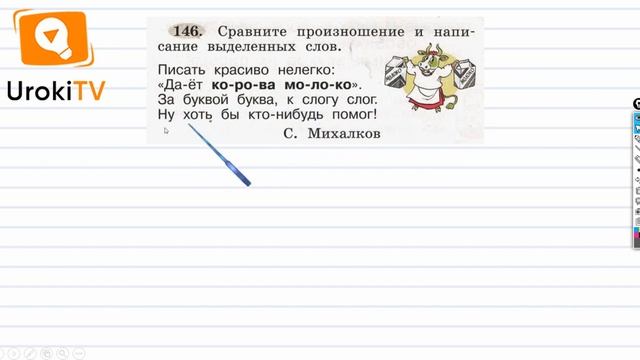 UrokiTV
146. Сравните произношение и напи-
сание выделенных слов.
Писать красиво нелегко:
«Да-ёт ко-ро-ва мо-ло-ко».
За буквой буква, к слогу слог.
Ну хоть бы кто-нибудь помог!
С. Михалков